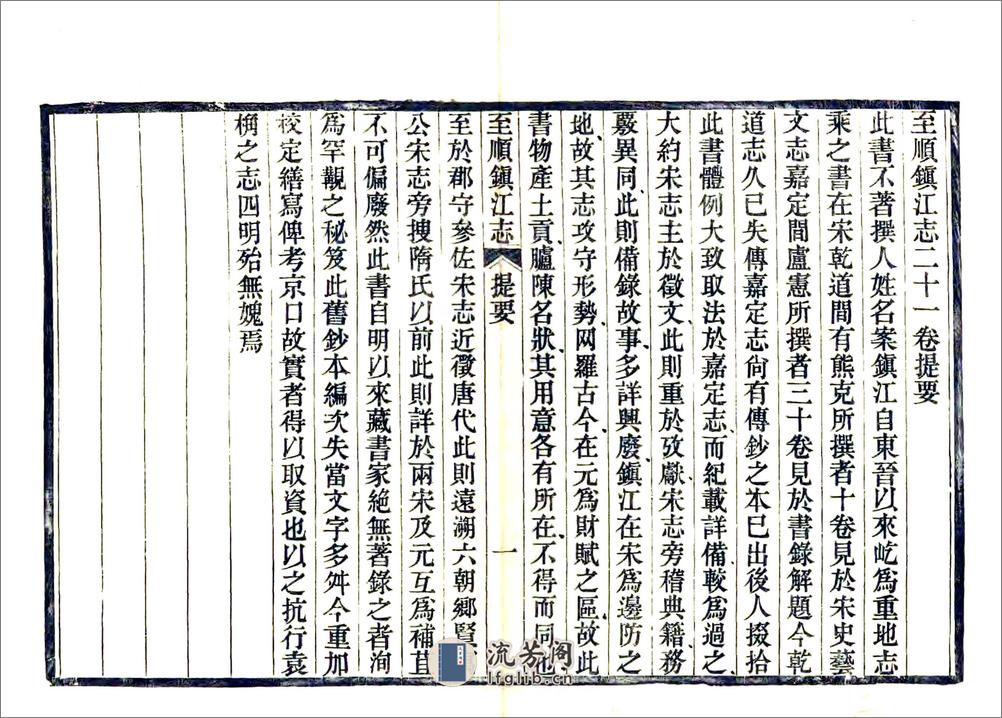 至順鎭江志二十一卷提要
此書不著撰人姓名案鎭江自東晉以來屹爲重地志
乘之書在宋乾道間有熊克所撰者十卷見於宋史藝
文志嘉定間盧憲所撰者三十卷見於書錄解題今乾
道志久已失傳嘉定志尙有傳鈔之本巳出後人掇拾
此書體例大致取法於嘉定志、而紀載詳備較爲過之
大約宋志主於徵文、此則重於攷獻、宋志旁稽典籍、務
覈異同、此則備錄故事、多詳興廢、鎭江在宋爲邊防之
地、故其志攻守形勢、网羅古今、在元爲財賦之區、故此
書物產土貢、臚陳名狀、其用意各有所在、不得而同也
至順鎭江志 提要 一
至於郡守參佐宋志近徵唐代此則遠溯六朝鄉賢
公宋志旁搜隋氏以前此則詳於兩宋及元互爲補苴
不可偏廢然此書自明以來藏書家絶無著錄之者洵
爲罕覯之秘笈此舊鈔本編次失當文字多舛今重加
校定繕寫俾考京口故實者得以取資也以之抗行袁
桷之志四明殆無媿焉
流芳閣
lfglib.cn